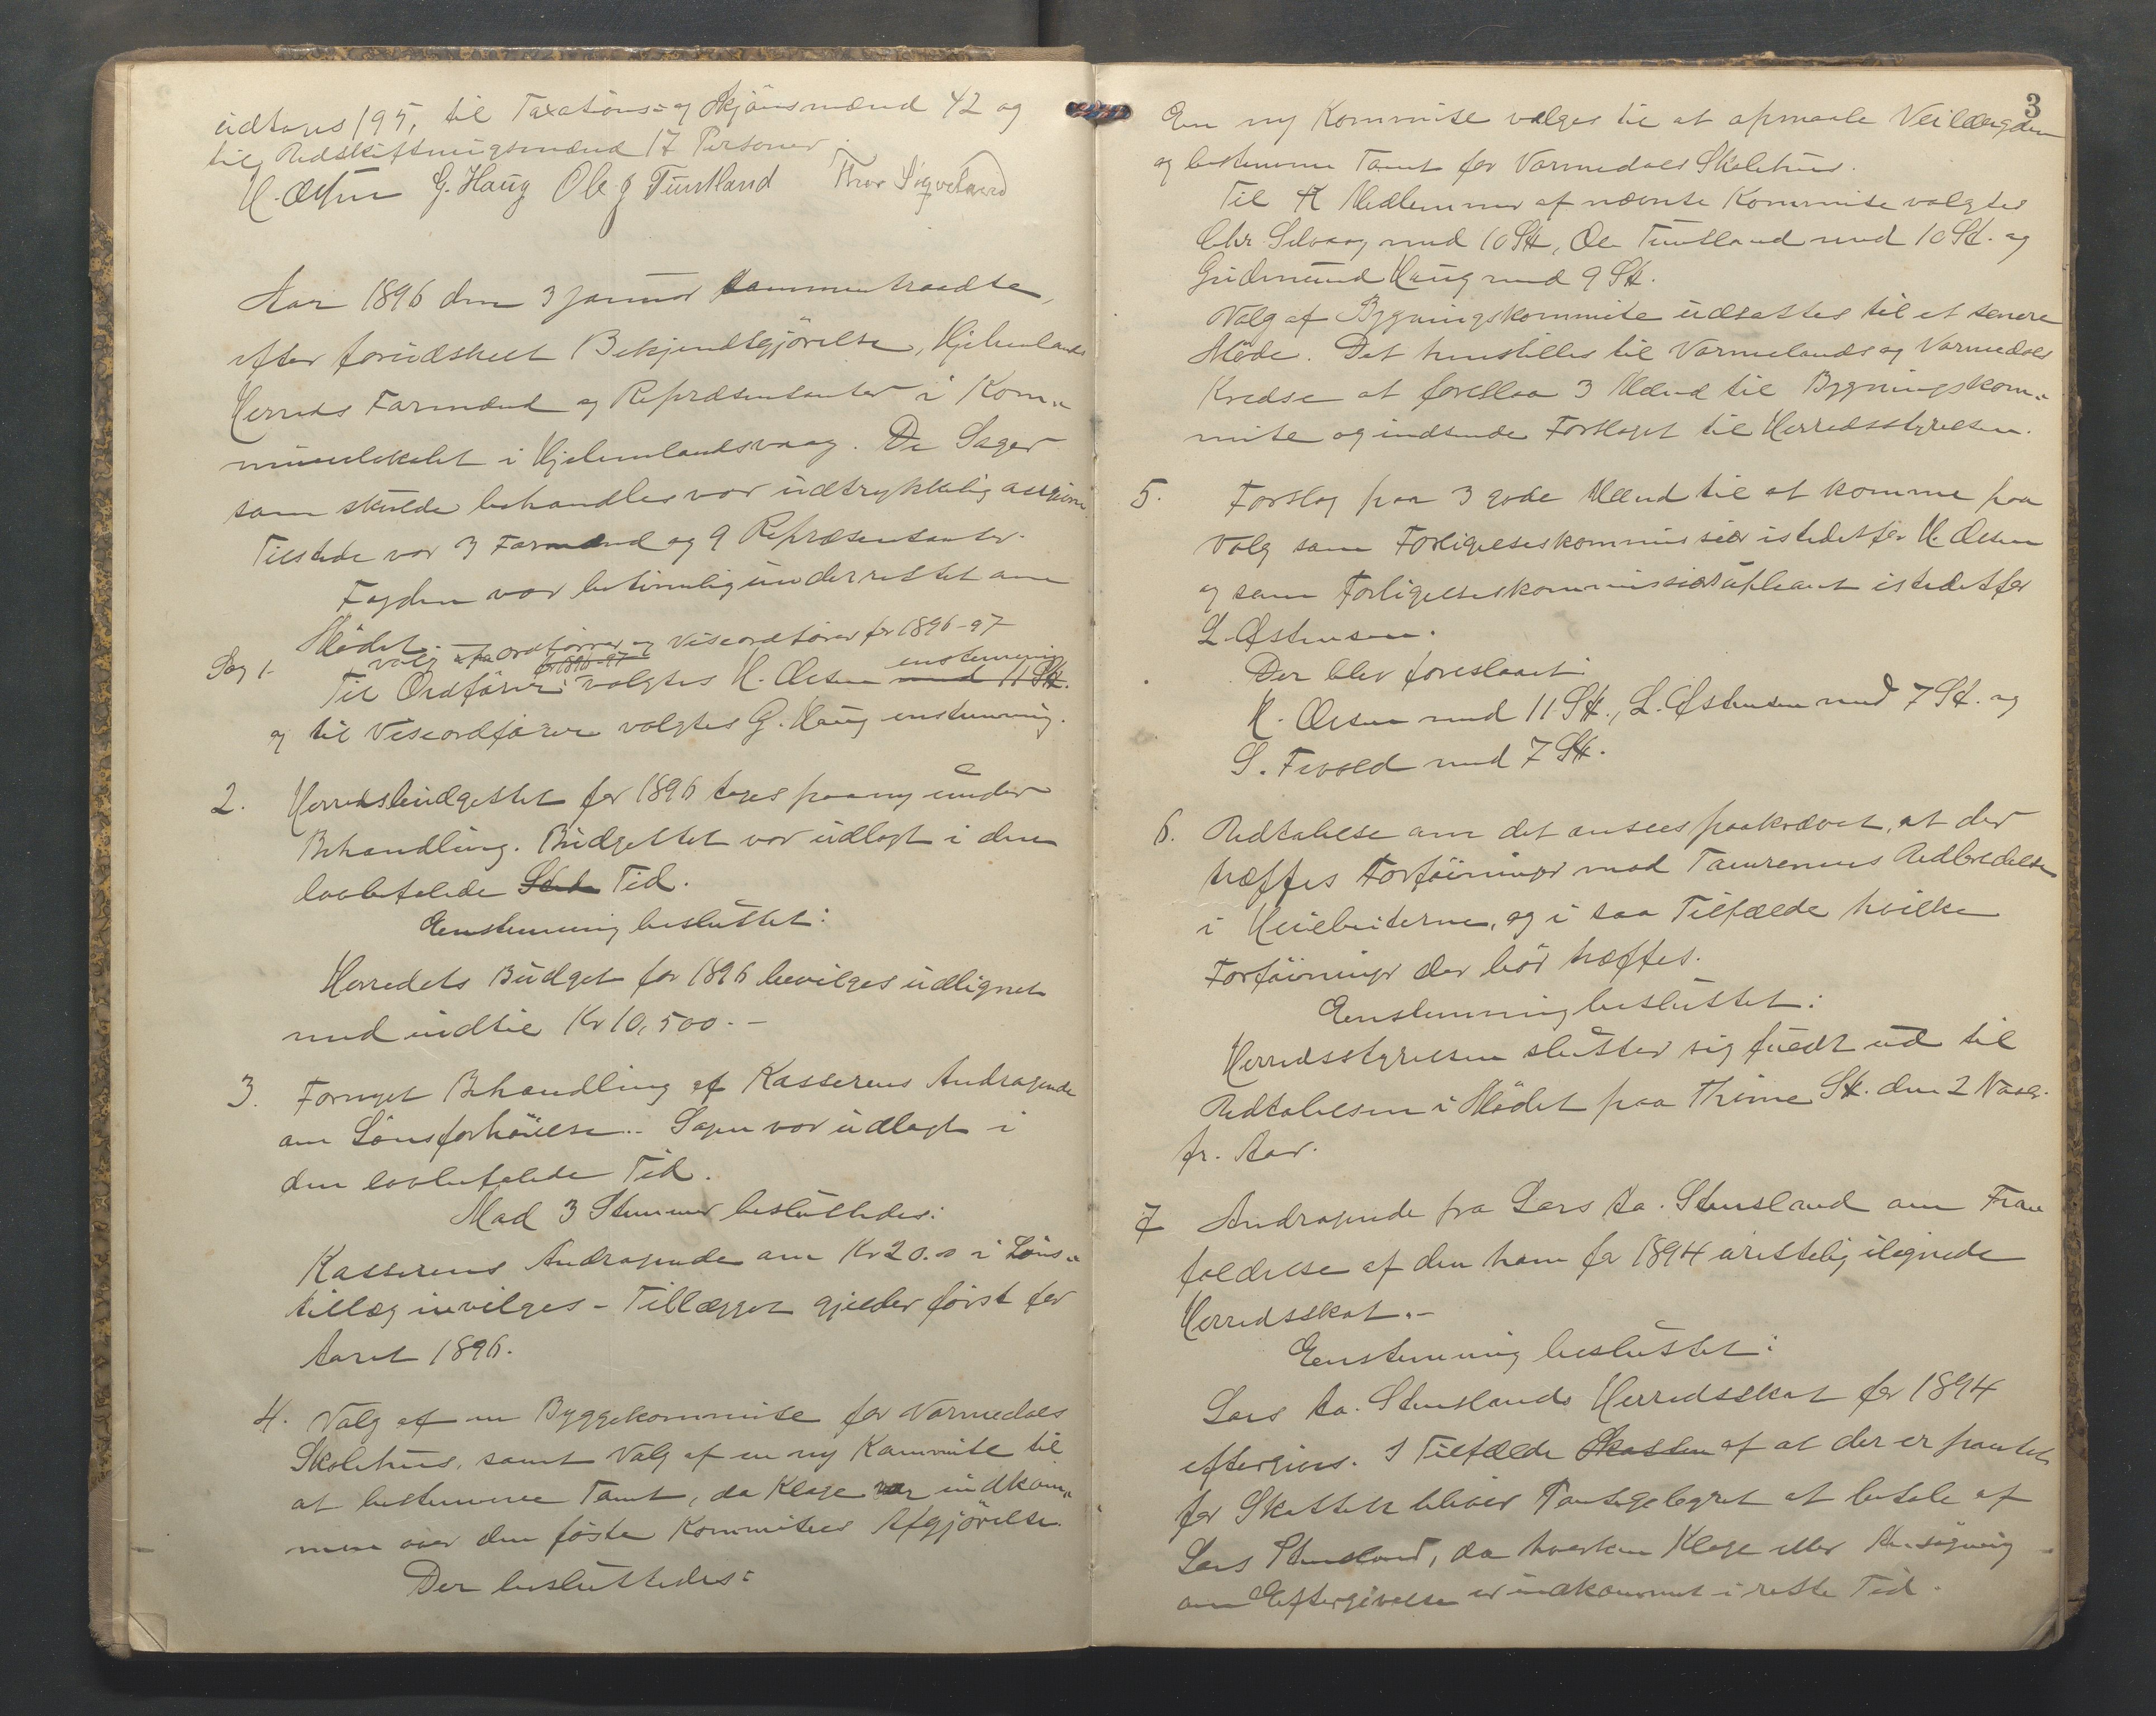 udtages 195, til Taxations- og Skjönsmænd 42 og
til Udskiftningsmænd 17 Personer.
H. Olsen G. Haug Ole J Tuntland Thor Sigvaland
Aar 1896 den 3 januar sammentraadte,
efter forudskeet Bekjendtgjörelse, Hjelmelands
Herreds Formænd og Repræsentanter i Kom-
munelokalet i Hjelmelandsvaag. De Sager
som skulde behandles var udtrykkelig angivne.
Tilstede var 3 Formænd og 9 Repræsentanter.
Fogden var betimelig underrettet om
Mödet.
Sag 1. Valg af Ordförer og Viseordförer for 1896-97
for 1896-97 enstemmig
Til Ordförer valgtes H. Olsen med 11 St.
og til Viseordförer valgtes G. Haug enstemmig.
2. Herredsbudgettet for 1896 toges paany under
Behandling. Budgettet var udlagt i den
lovbefalede Sted Tid.
Eenstemmig besluttet:
Herredets Budget for 1896 bevilges udlignet
med indtil Kr 10,500.-
3. Fornyet Behandling af Kasserens Andragende
om Lönsforhöielse. Sagen var udlagt i
den lovbefalede Tid.
Mod 3 Stemmer besluttedes:
Kasserens Andragende om Kr 20.00 i Löns-
tillæg invilges - Tillægget gjælder först for
Aaret 1896.
4. Valg af en Byggekommite for Vormedals
Skolehus, samt Valg af en ny Kommite til
at bestemme Tomt, da Klage var indkom-
men over den förste Kommitees Afgjörelse.
Der besluttedes:
3
En ny Kommite vælges til at opmaale Veilængden
og bestemme Tomt for Vormedals Skolehus.
Til Medlemmer af nævnte Kommite valgtes
Chr. Selvaag med 10 St, Ole Tuntland med 10 St. og
Gudmund Haug med 9 St.
Valg af Bygningskommite udsattes til et senere
Möde. Det henstilles til Vormelands og Vormedals
Kredse at foreslaa 3 Mænd til Bygningskom-
mite og indsende Forslaget til Herredsstyrelsen.
5. Forslag paa 3 gode Mænd til at komme paa
Valg som Forligelseskommissær istedetfor H. Olsen
og som Forligelseskommissærsupleant istedetfor
L. Östensen.
Der blev foreslaaet:
H. Olsen med 11 St., L. Östensen med 7 St. og
S. Fevold med 7 St.
6. Udtalelse om det ansees paakrævet, at der
træffes Forföininger mod Tamrenens Udbredelse
i Heiebeiterne, og i saa Tilfælde hvilke
Forföininger der bör træffes.
Eenstemmig besluttet:
Herredsstyrelsen slutter sig fuldt ud til
Udtalelsen i Mödet paa Thime St. den 2 Novbr.
fr. Aar.
7 Andragende fra Lars Aa. Stensland om Fra-
faldelse af den ham for 1894 uristelig ilignede
Herredsskat.-
Eenstemmig besluttet:
Lars Aa. Stenslands Herredsskat for 1894
eftergives. I Tilfælde Skatten af at der er pantet
for Skatten bliver Pantegebyret at betale af
Lars Stensland, da hverken Klage eller Ansögning
om Eftergivelse er indkommet i rette Tid.